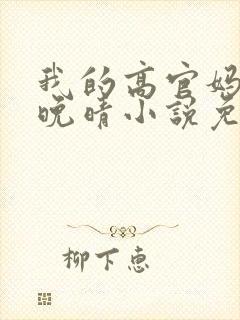 我的高官妈
晚晴小说免
柳下惠